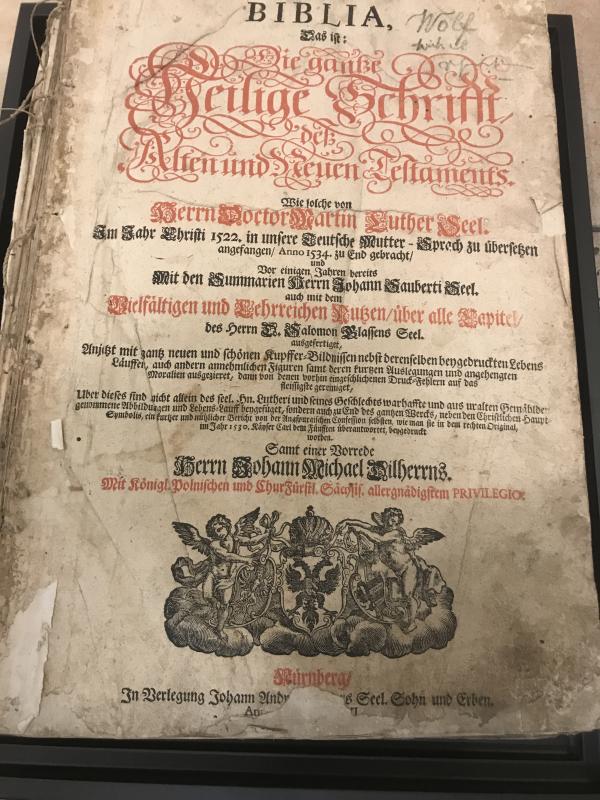 BIBLIA,
Wolf
Das ist:
Die gantze
Heilige Schrifft/
deß
Alten und Neuen Testaments.
Wie solche von
Herrn Doctor Martin Luther Seel.
Im Jahr Christi 1522. in unsere Teutsche Mutter-Sprach zu übersetzen
angefangen/ Anno 1534. zu End gebracht/
und
Vor einigen Jahren bereits
Mit den Summarien Herrn Johann Sauberti Seel.
auch mit dem
Vielfältigen und Lehrreichen Nutzen/ über alle Capitel/
des Herrn D. Salomon Glassens Seel.
ausgefertiget,
Anjetzt mit gantz neuen und schönen Kupffer-Bildnissen nebst derenselben beygedruckten Lebens
Läuffen, auch andern annehmlichen Figuren samt deren kurtzen Auslegungen und angehengten
Moralien ausgezieret, dann von denen vorhin eingeschlichenen Druck-Fehlern auf das
fleissigste gereiniget,
Uber dieses sind nicht allein des seel. Hn. Lutheri und seines Geschlechts warhaffte und aus uralten Gemählden
genommene Abbildungen und Lebens-Läuff beygefüget, sondern auch zu End des gantzen Wercks, neben den Christlichen Haupt-
Symbolis, ein kurtzer und nützlicher Bericht von der Augspurgischen Confession selbsten, wie man sie in dem rechten Original,
im Jahr 1530. Käyser Carl dem Fünfften überantwortet, beygedruckt
worden.
Samt einer Vorrede
Herrn Johann Michael Dilherrns.
Mit Königl. Polnischen und ChurFürstl. Sächsis. allergnädigstem PRIVILEGIO.
Nürnberg/
In Verlegung Johann Seel. Sohn und Erben.